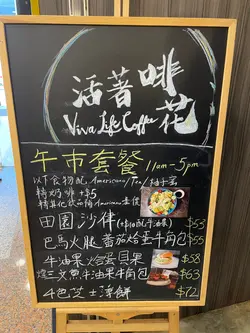 活著啡
花
Viva Life Coffee
午市套餐 11am-5pm
以下食物配 Americano/Tea/柚子蜜
精奶啡 +$5
田園沙律 $53
巴馬火腿蕃茄炒蛋牛角包 $55
牛油果炒蛋貝果 $58
煙三文魚牛油果牛角包 $63
4色芝士薄餅 $72